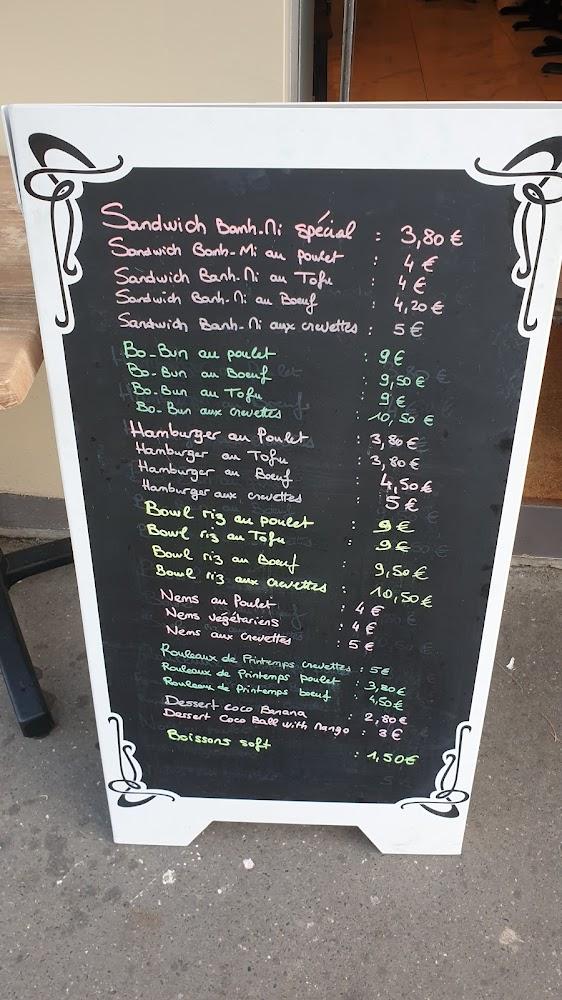 Sandwich Banh-Mi spécial : 3,80 €
Sandwich Banh-Mi au poulet : 4 €
Sandwich Banh-Mi au Tofu : 4 €
Sandwich Banh-Mi au Boeuf : 4,20 €
Sandwich Banh-Mi aux crevettes : 5 €
Bo-Bun au poulet : 9 €
Bo-Bun au Boeuf : 9,50 €
Bo-Bun au Tofu : 9 €
Bo-Bun aux crevettes : 10,50 €
Hamburger au Poulet : 3,80 €
Hamburger au Tofu : 3,80 €
Hamburger au Boeuf : 4,50 €
Hamburger aux crevettes : 5 €
Bowl riz au poulet : 9 €
Bowl riz au Tofu : 9 €
Bowl riz au Boeuf : 9,50 €
Bowl riz aux crevettes : 10,50 €
Nems au Poulet : 4 €
Nems végétariens : 4 €
Nems aux crevettes : 5 €
Rouleaux de Printemps crevettes : 5 €
Rouleaux de Printemps poulet : 3,80 €
Rouleaux de Printemps boeuf : 4,50 €
Dessert Coco Banana : 2,80 €
Dessert Coco Ball with Mango : 3 €
Boissons soft : 1,50 €